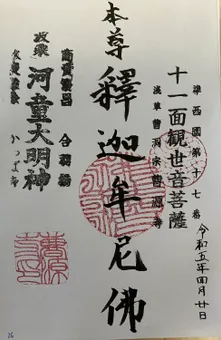 準西國第十七番
十一面観世音菩薩
浅草曹洞宗曹源寺
令和五年四月廿日
本尊
釋迦牟尼佛
商賣繁昌 合羽橋
河童大明神
かっぱ寺
曹源寺印